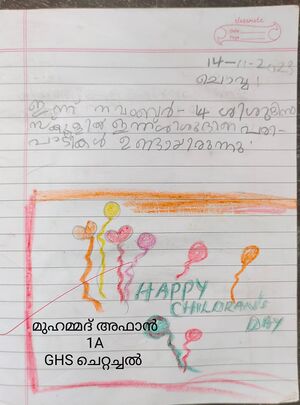 classmate
Date
Page
14-11-2023
ചൊവ്വ.
ഇന്ന് നവംബർ-14 ശിശുദിനം
സ്കൂളിൽ ഇന്ന് ശിശുദിന പരി
പാടികൾ ഉണ്ടായിരുന്നു.
HAPPY
CHILDRAN'S
DAY
മുഹമ്മദ് അഫാൻ
1A
GHS ചെറ്റച്ചൽ